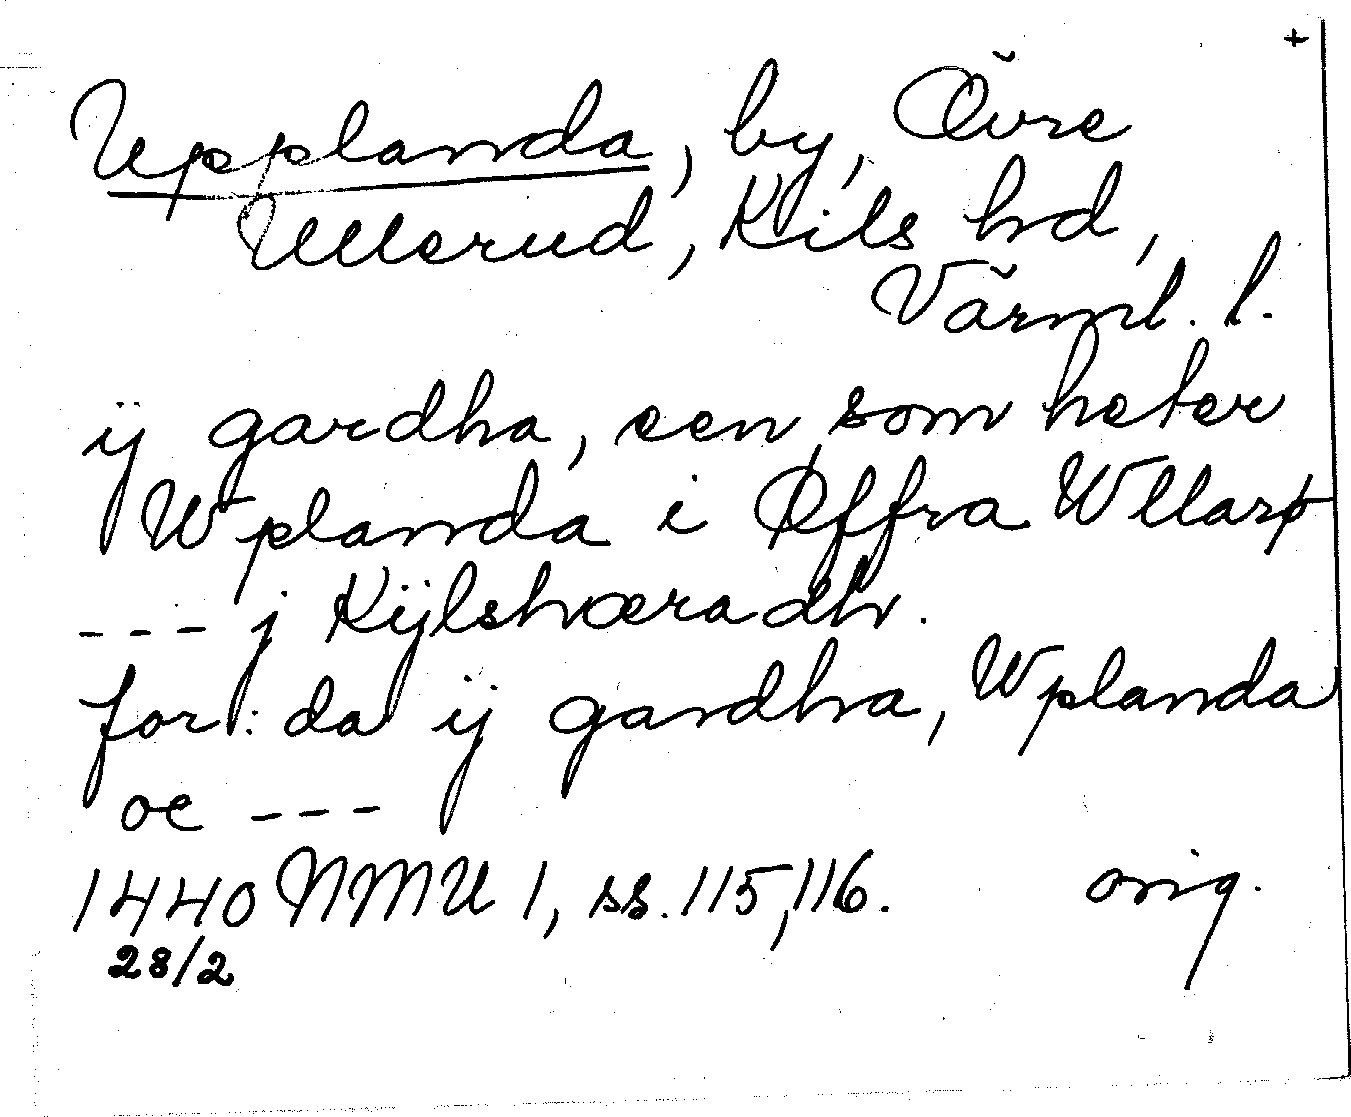 +
Upplanda, by, Övre
Ullerud, Kils hd,
Värml. l.
ij gardha, een som heter
Wplanda i Øffra Wllarø
--- j Kijlshæradh.
for: da ij gardha, Wplanda
oc ---
1440 NMU 1, ss. 115, 116. orig.
28/2